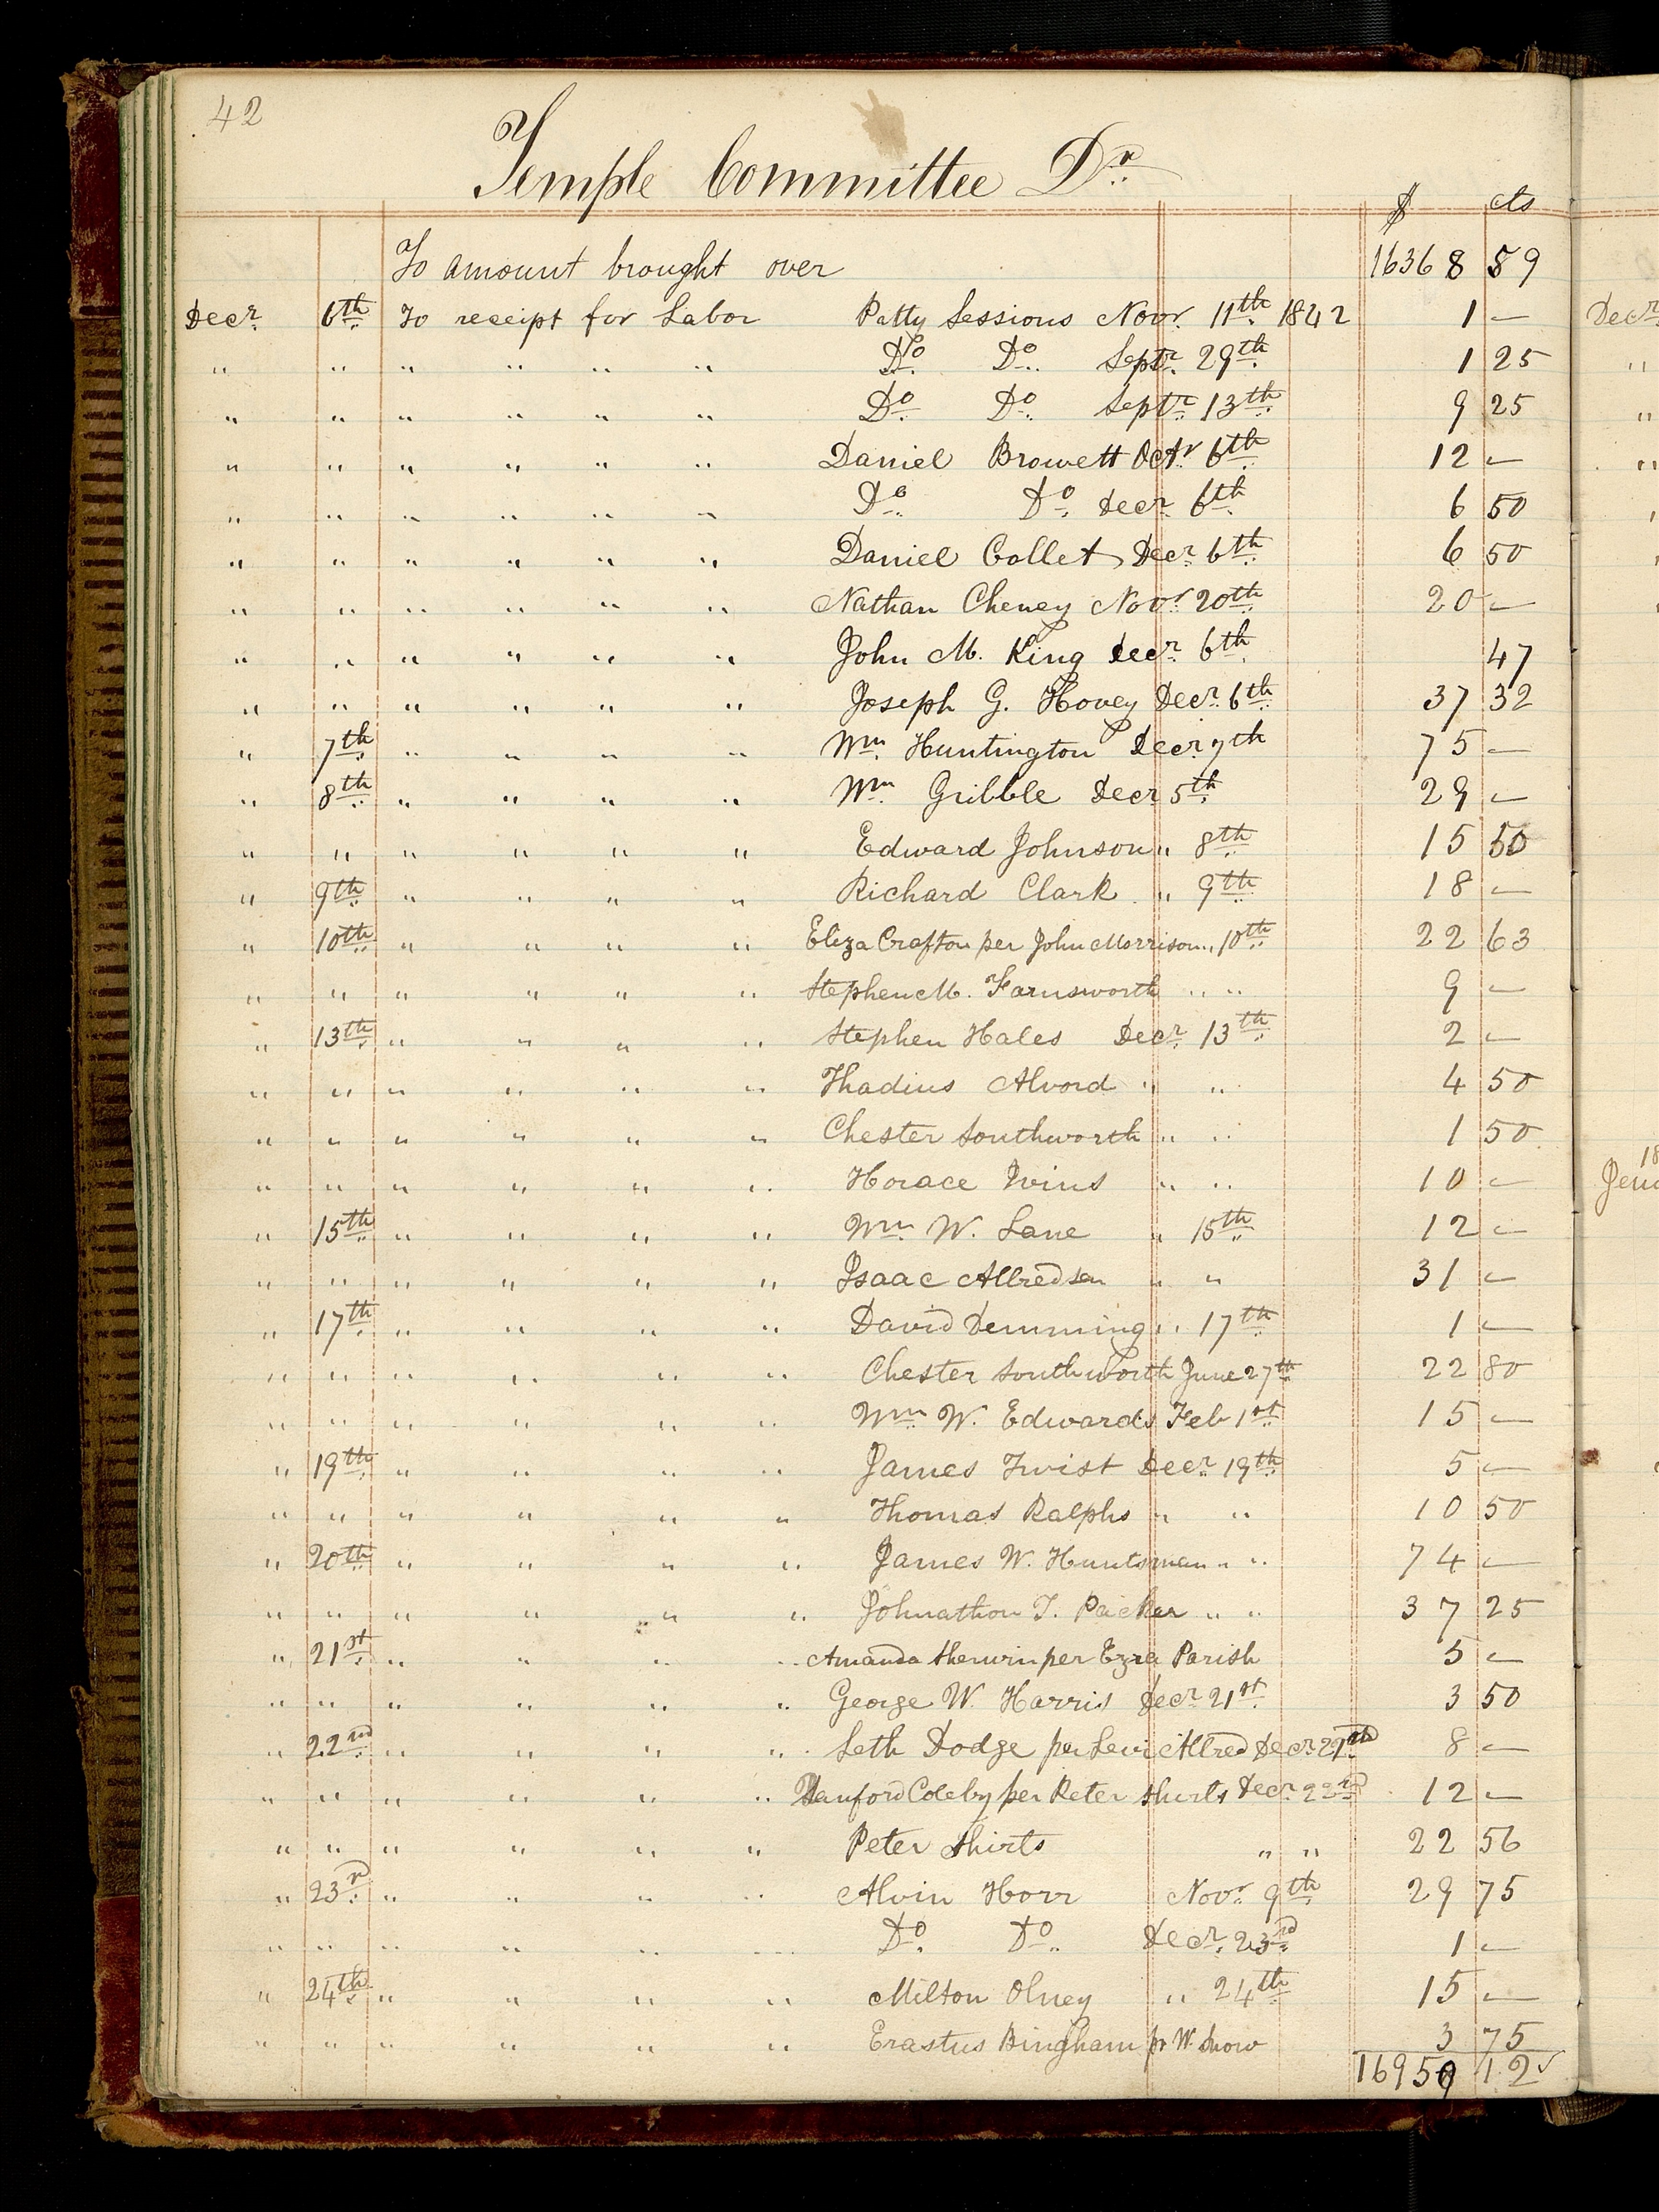 42
Temple Committee Dr
$ cts
To amount brought over 16368 59
Decr. 6th To receipt for Labor Patty Sessions Novr. 11th 1842 1 —
" " " " " " Do Do Septr. 29th 1 25
" " " " " " Do Do Septr 13th 9 25
" " " " " " Daniel Browett Octr 6th 12 —
" " " " " " Do Do Decr 6th 6 50
" " " " " " Daniel Collet Decr 6th 6 50
" " " " " " Nathan Cheney Novr 20th 20 —
" " " " " " John M. King Decr 6th 47
" " " " " " Joseph G. Hovey Decr 6th 37 32
" 7th " " " " Wm. Huntington Decr 7th 75 —
" 8th " " " " Wm. Gribble Decr 5th 29 —
" " " " " " Edward Johnson " 8th 15 50
" 9th " " " " Richard Clark " 9th 18 —
" 10th " " " " Eliza Crafton per John Morrison " 10th 22 63
" " " " " " Stephen M. Farnsworth " " 9 —
" 13th " " " " Stephen Hales Decr 13th 2 —
" " " " " " Thadius Alvord " " 4 50
" " " " " " Chester Southworth " " 1 50
" " " " " " Horace Ivins " " 10 —
" 15th " " " " Wm. W. Lane " 15th 12 —
" " " " " " Isaac Allred sen " " 31 —
" 17th " " " " David Demming " 17th 1 —
" " " " " " Chester Southworth June 27th 22 80
" " " " " " Wm W. Edwards Feb 1st 15 —
" 19th " " " " James Twist Decr 19th 5 —
" " " " " " Thomas Ralphs " " 10 50
" 20th " " " " James W. Huntsman " " 74 —
" " " " " " Johnathon T. Packer " " 37 25
" 21st " " " " Amanda Sherwin per Ezra Parish 5 —
" " " " " " George W. Harris Decr 21st 3 50
" 22nd " " " " Seth Dodge per Levi Allred Decr 8 —
" " " " " " Coleby per Peter Shirts Decr 22nd 12 —
" " " " " " Peter Shirts " " 22 56
" 23rd " " " " Alvin Horr Novr 9th 29 75
" " " " " " Do. Do. Decr. 23rd 1 —
" 24th " " " " Milton Olney " 24th 15 —
" " " " " " Erastus Bingham pr W. Snow 3 75
16959 12
Decr